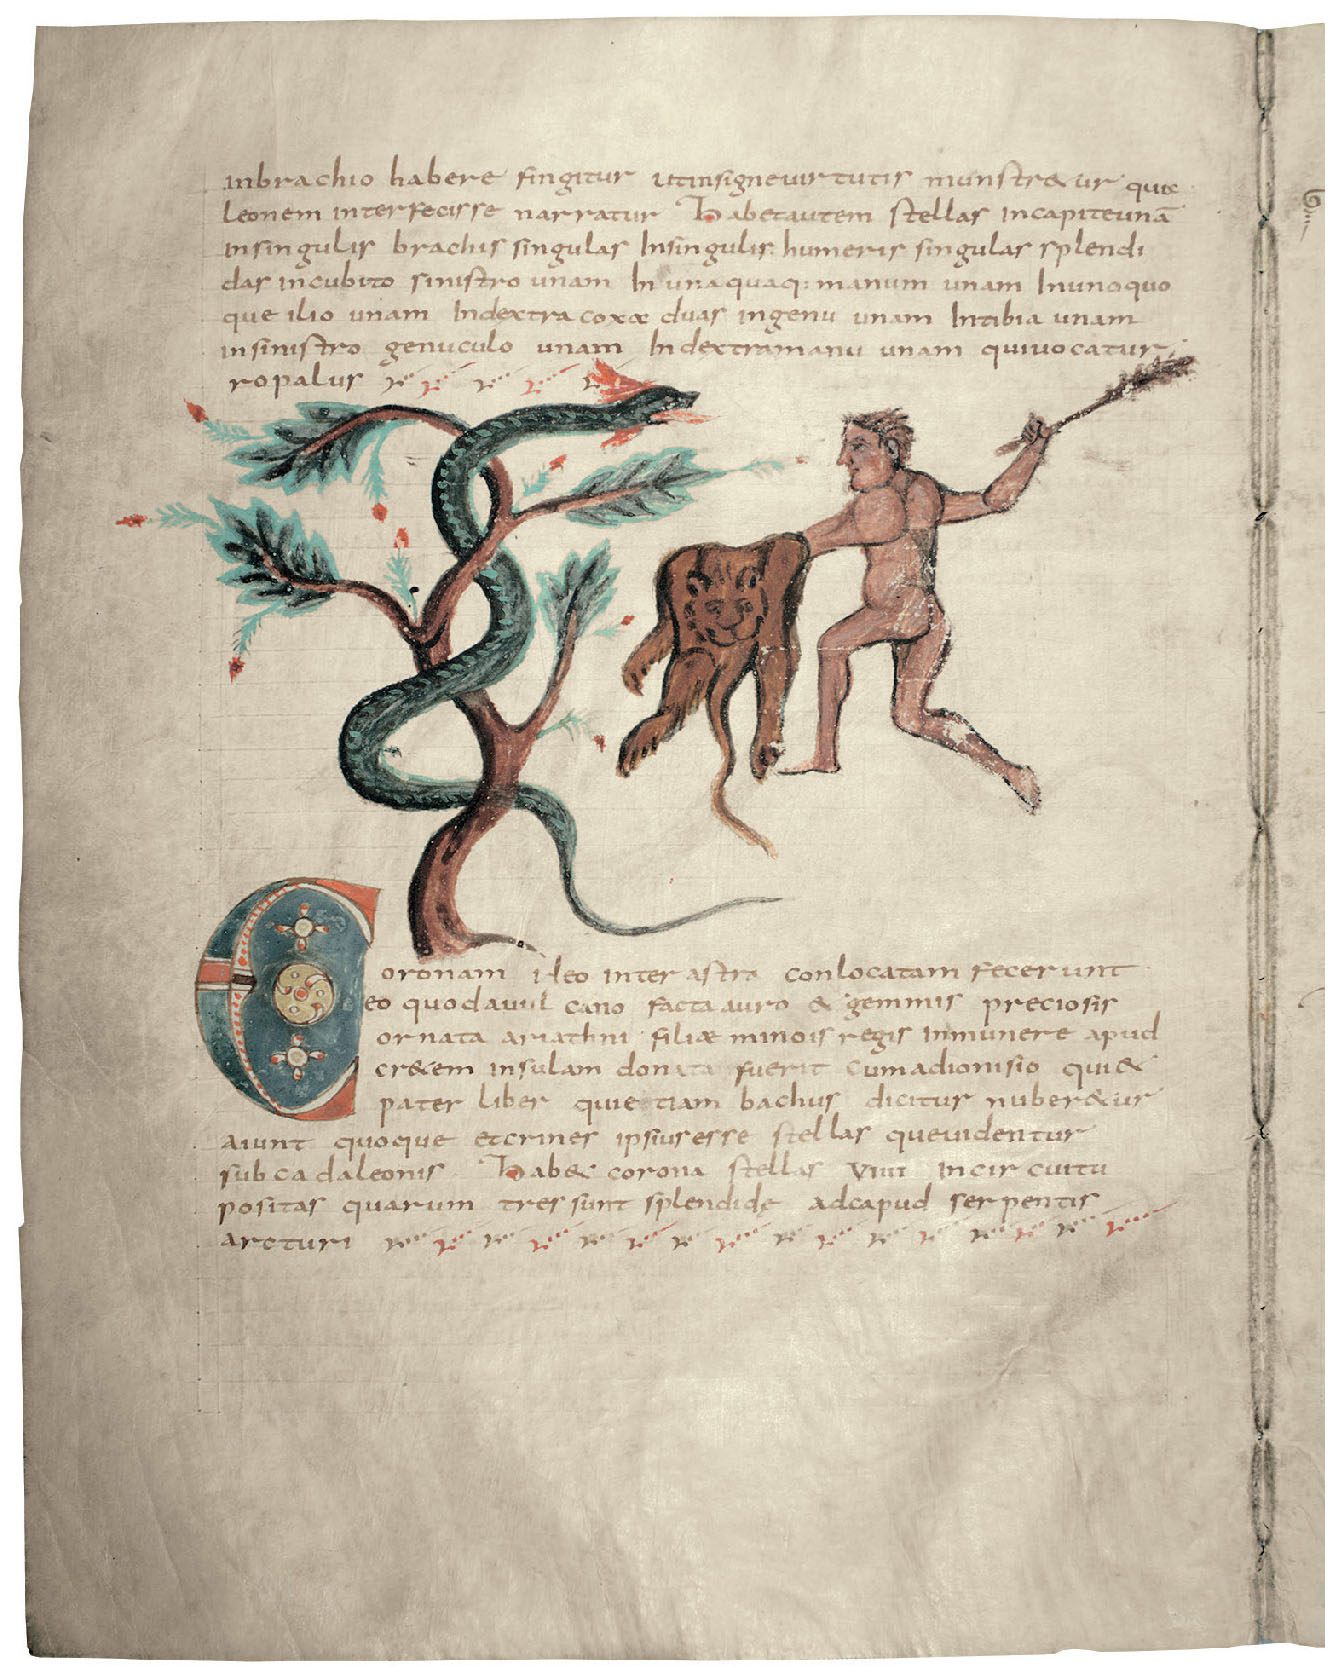 inbrachio habere fingitur utinsigneuirtutis munstr&ur quia
leonem interfecisse narratur Habetautem stellas incapiteunā
insingulis brachis singulas Insingulis humeris singulas splendi
das incubito sinistro unam In unaquaq: manum unam Inunoquo
que ilio unam Indextra coxa duas ingenu unam Intibia unam
insinistro genuculo unam Indextramanu unam quiuocatur
ropalus
Coronam inter astra conlocatam fecerunt
eo quodauul cano facta auro & gemmis preciosis
ornata ariathni filiæ minois regis inmunere apud
cr&em insulam donata fuerit Cumadionisio qui&
pater liber quietiam bachus dicitur nuber&ur
aiunt quoque etcriner ipsiusesse stellas queuidentur
sub cadaleonis Hab& corona stellas VIIII incircuitu
positas quarum tres sunt splendidę adcapud serpentis
arcturi